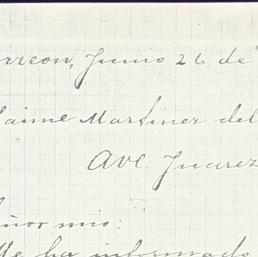 orreon, Junio 26 de
Jaime Martinez del
Ave. Juarez
eñor mio:
Me ha informado